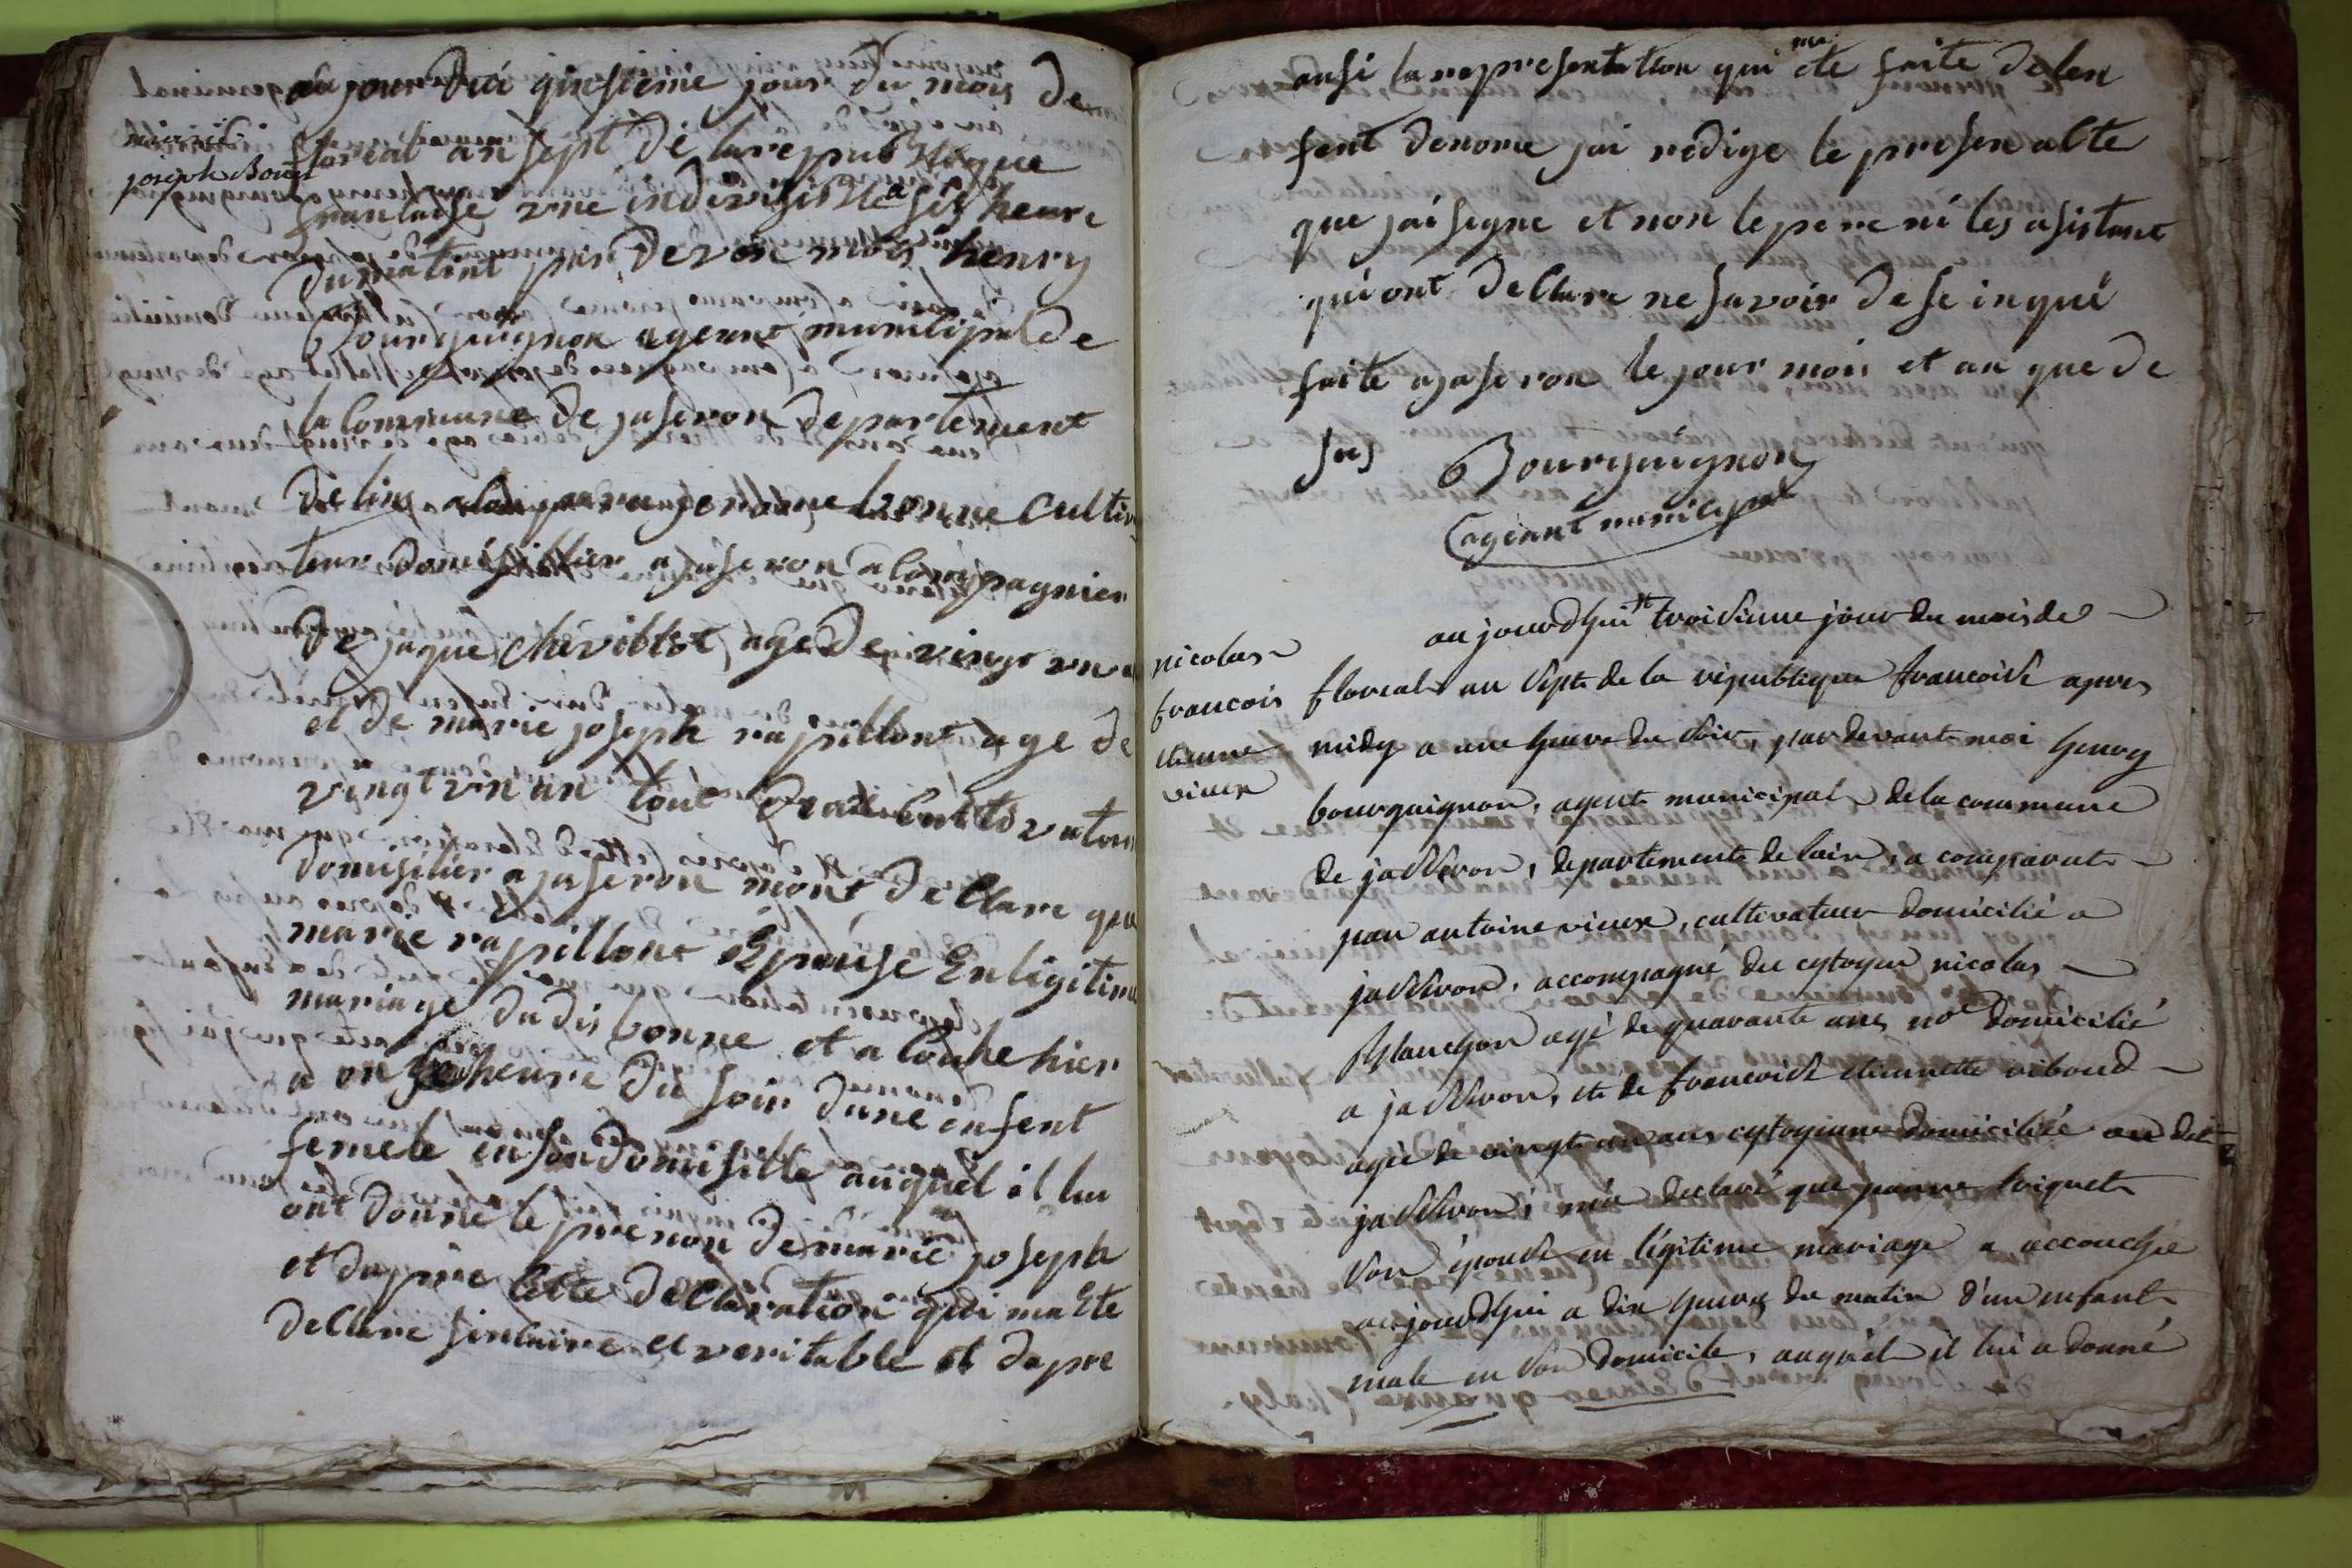 marie
joseph Bonne
au jour Dui quinsieme jour du mois de
floreal an sept de la republique
franlaise une indivisible a six heure
du matint par devon mois henry
Bourguignon ageant munilipal de
la Commune de jaseron departement
de lins a lon paru jerome bonne Culti
teur domisillier a jaseron a lonpagnier
De jaque chevillot age de vingt un
et de marie joseph rapillont age de
vingt un an tout deux Cultivateur
domisilier a jaseron mont de Clare que
marie rapillont Epouse En ligitime
mariage du dis bonne et a Couhe hier
a onse heure du soir dune enfent
femele en son domisille auquel il lui
ont donne le prenon de marie joseph
et dapre lette declaration qui ma Ete
declare sinlaire et veritable et dapre
ausi la representation qui ma ete faite de len
fent denome jai redige le presen alte
que jai signe et non le pere ni les asistant
qui ont deClare ne savoir de se inqui
faite a jaseron le jour mois et an que de
sus Bourguignon
ageant munilipal
nicolas
francois
etienne
vieux
aujourdhuit troisieme jour du mois de
floreal an sept de la republique francoise apres
midy a une heure du soir, par devant moi henry
bourguignon, agent municipal de la commune
de jasseron, departement de lain, a comparut
jean antoine vieux, cultivateur domicilié a
jasseron, accompagné du cytoyen nicolas
planchon agé de quarante ans no.e domicilié
a jasseron, et de francoise etiennette riboud
agée de vingt un ans cytoyenne domiciliée au dit
jasseron, m'a declaré que jeanne loignet
son épouse en légitime mariage a accouchée
aujourdhui a dix heures du matin d'un enfant
male en son domicile, auquel il lui a donné